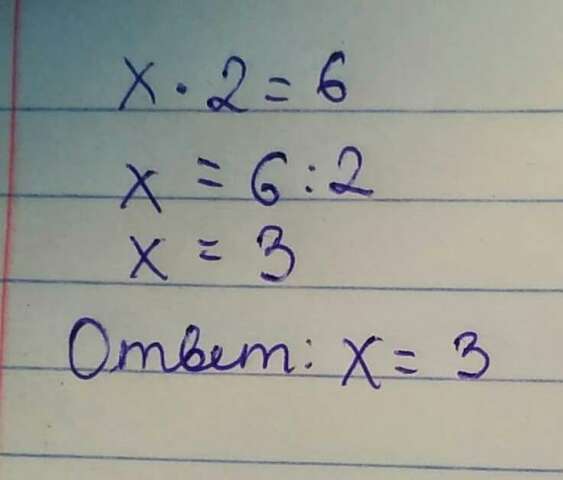 x · 2 = 6
x = 6 : 2
x = 3
Ответ: x = 3